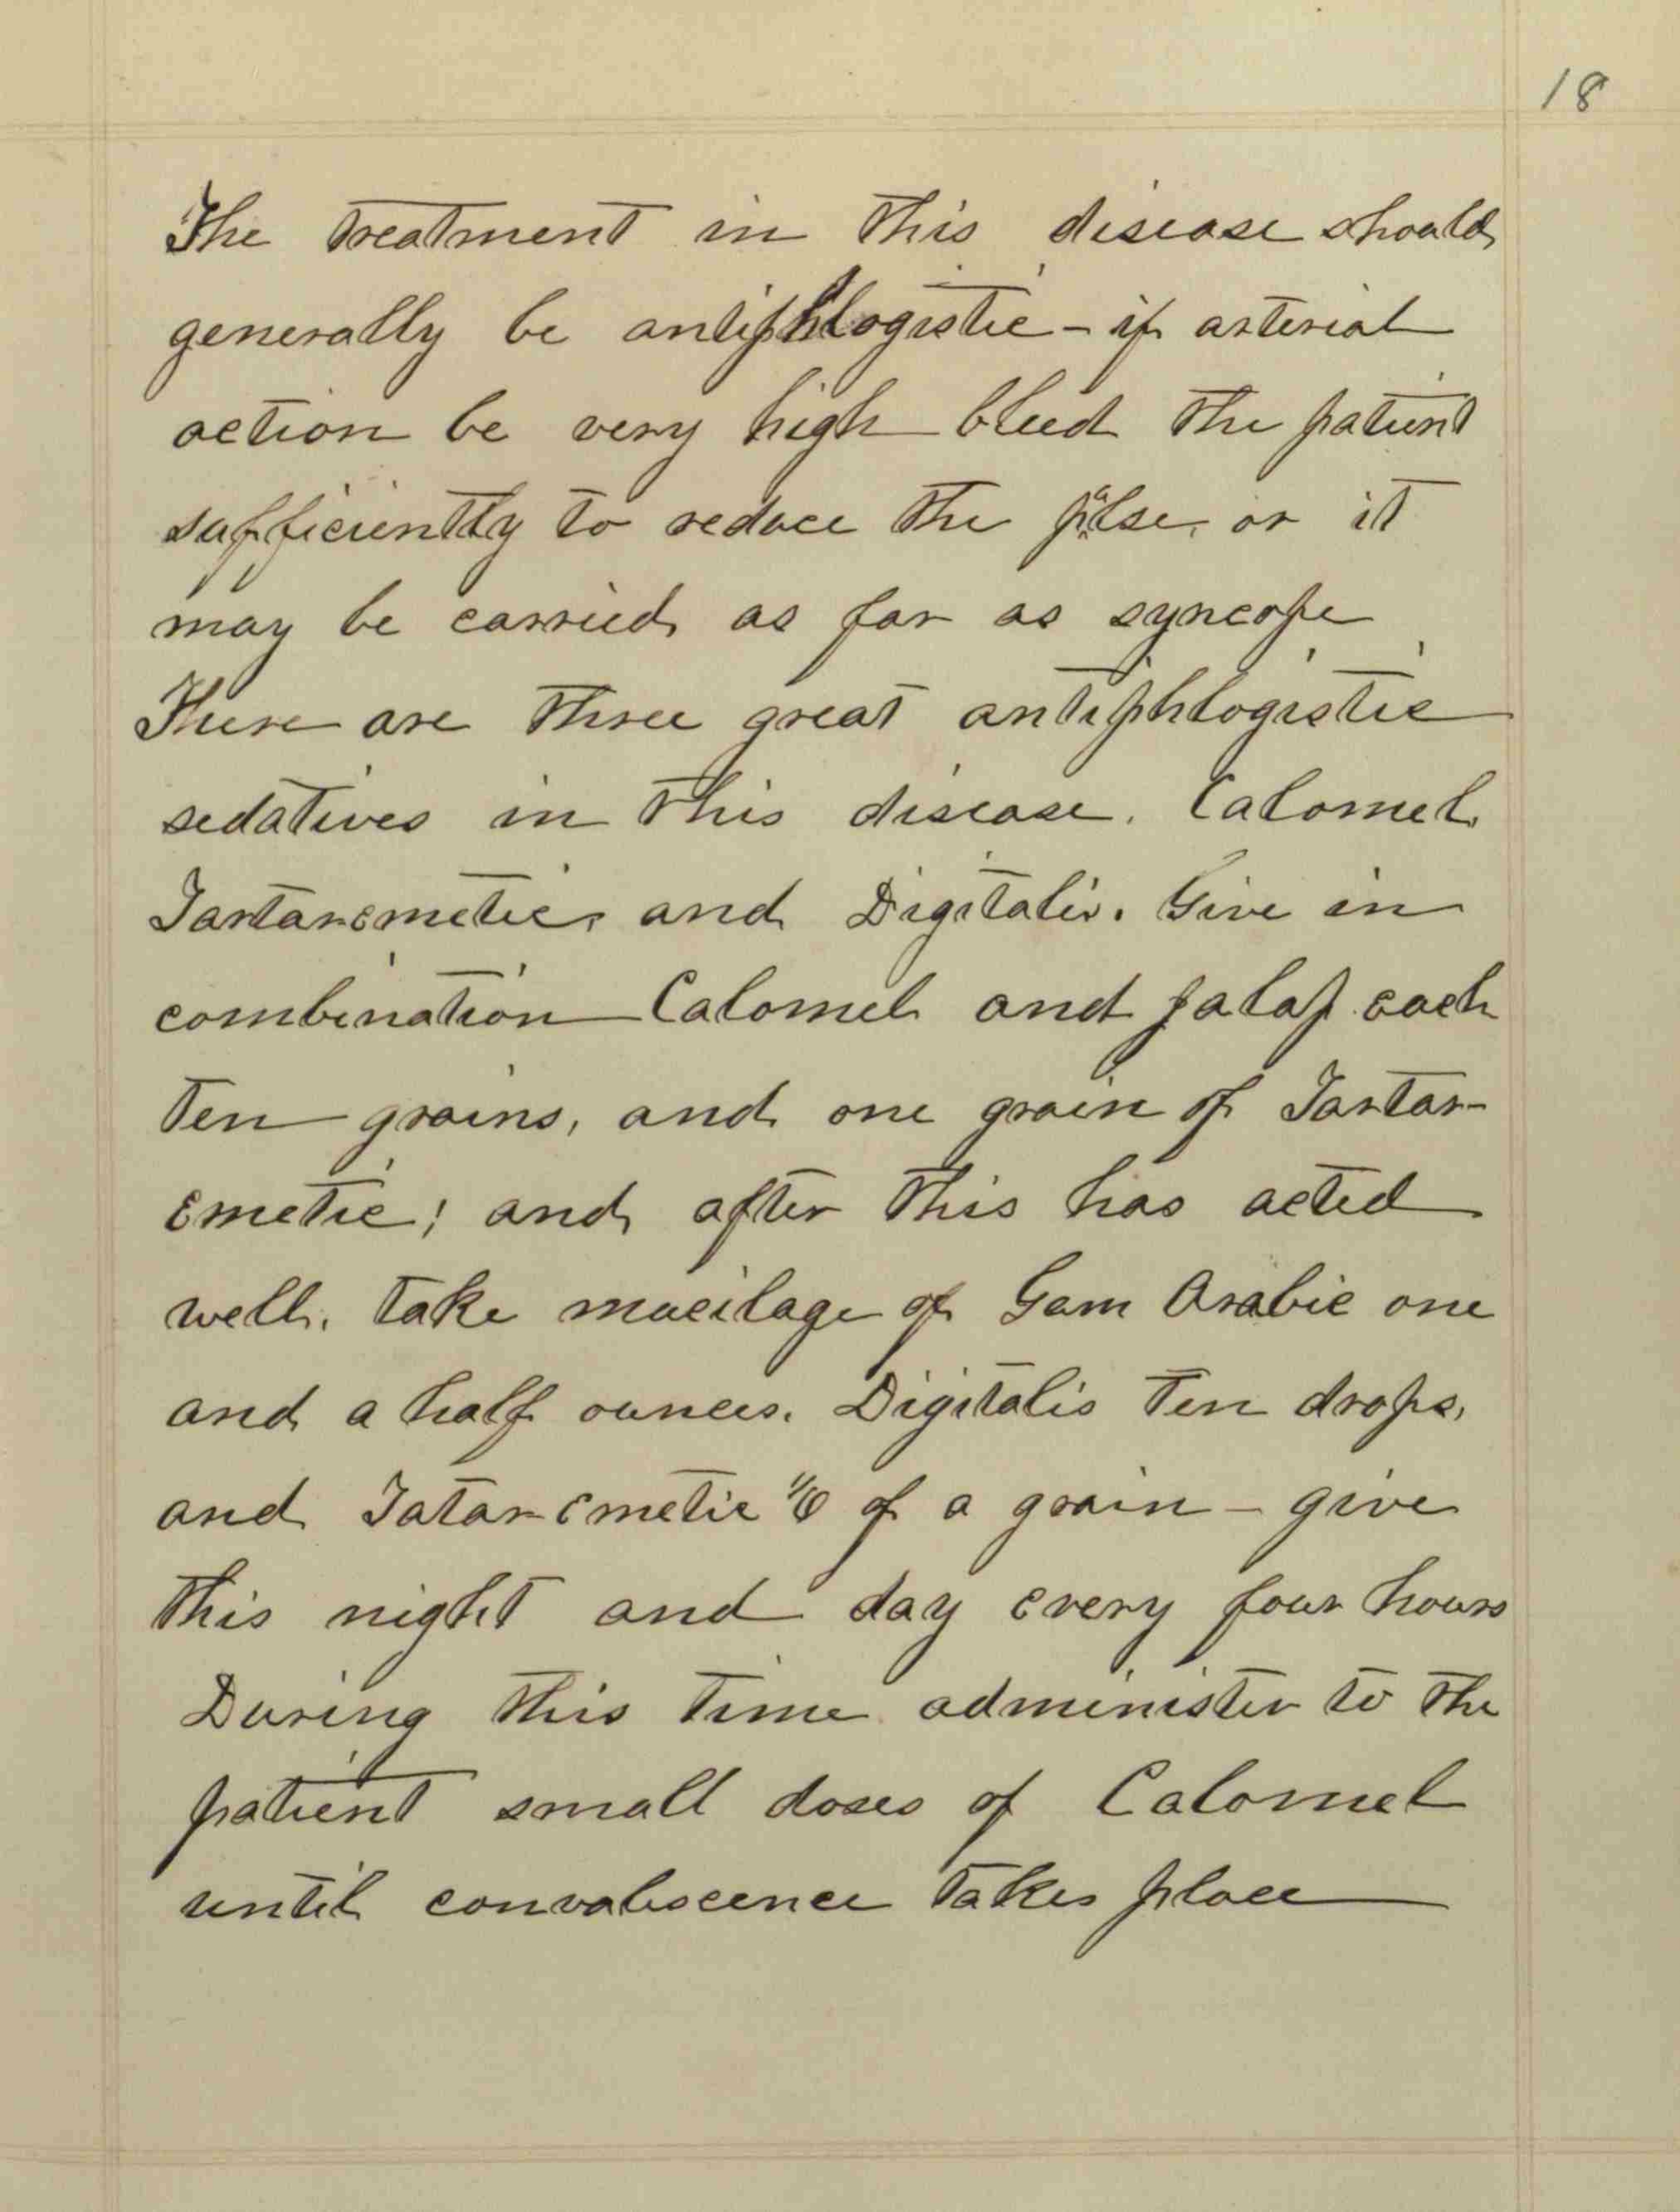 18
The treatment in this disease should
generally be antiphlogistic - if arterial
action be very high bleed the patient
sufficiently to reduce the pulse, or it
may be carried as far as syncope
There are three great antiphlogistic
sedatives in this disease. Calomel
Tartar emetic, and Digitalis. Give in
combination Calomel and jalap each
Ten grains, and one grain of Tartar-
Emetic; and after this has acted
well. take mucilage of Gum Arabic one
and a half ounces. Digitalis Ten drops,
and Tatar Emetic 1/6 of a grain - give
this night and day every four hours
During this time administer to the
patient small doses of Calomel
until convalescence takes place